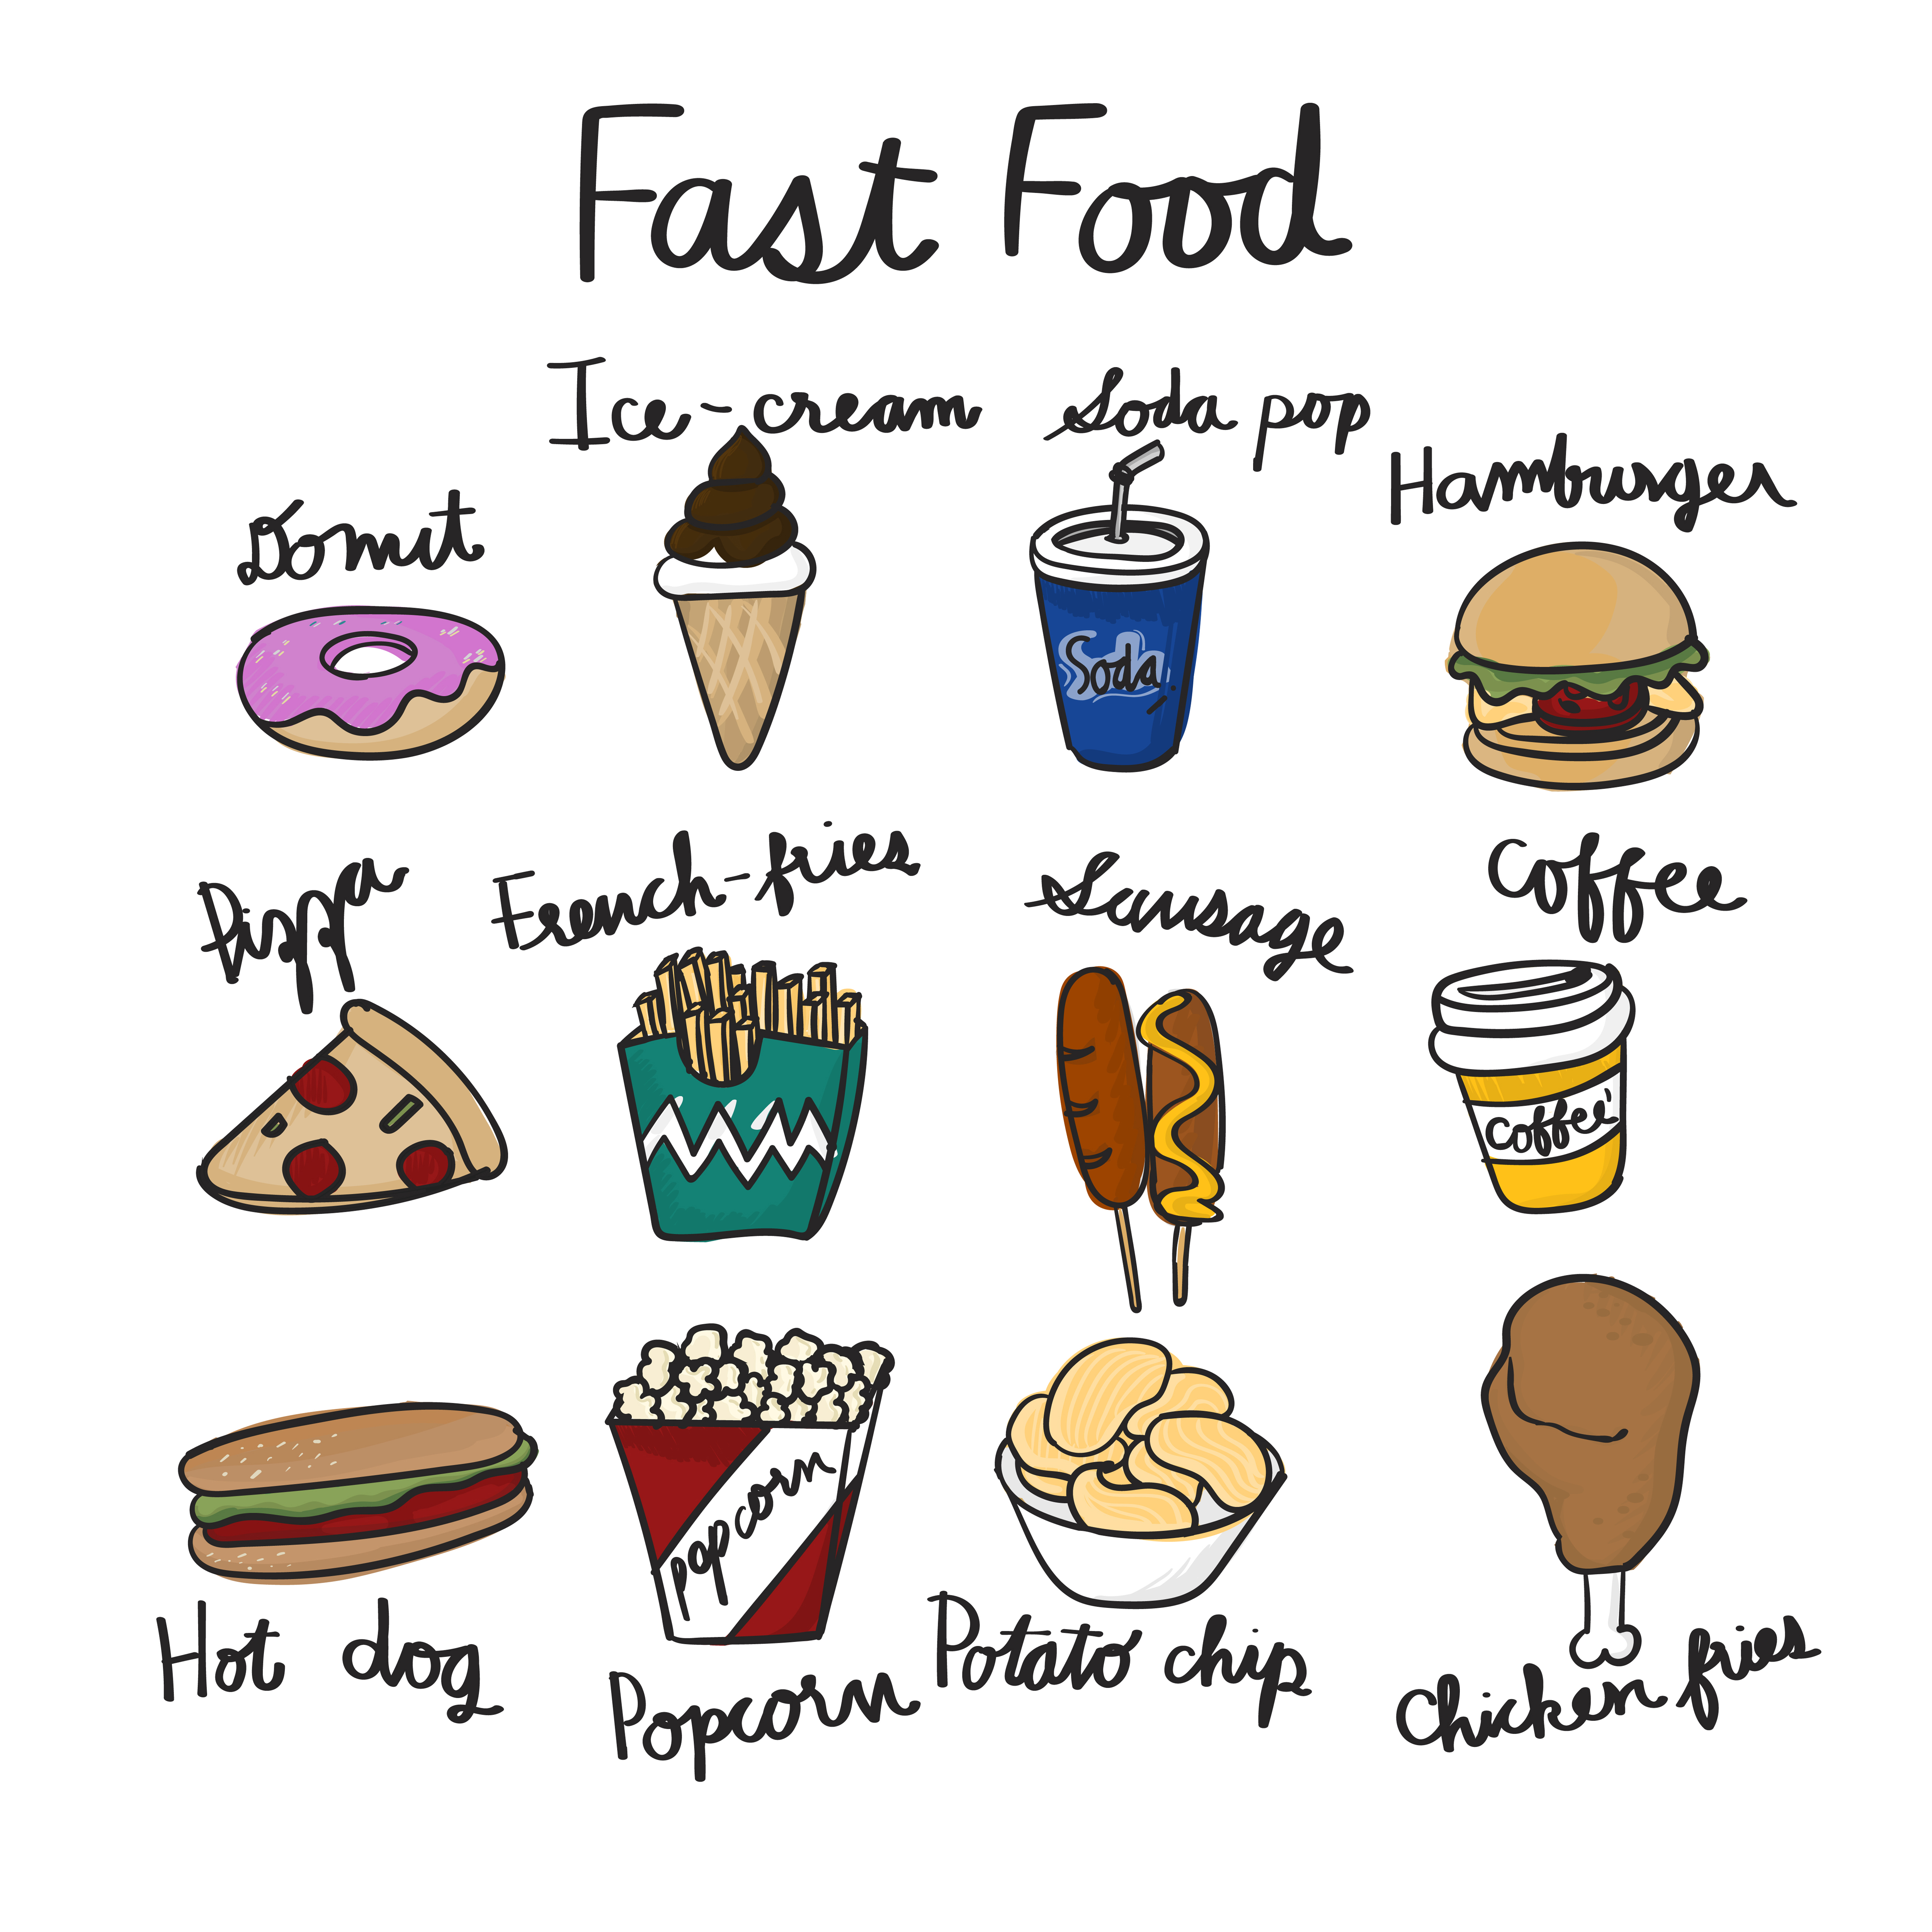 Fast Food
Ice-cream
Soda pop
Hamburger
Donut
Soda
Pizza
French-fries
Sausage
Coffee
coffee
popcorn
Hot dog
Popcorn
Potato chip
Chicken fries